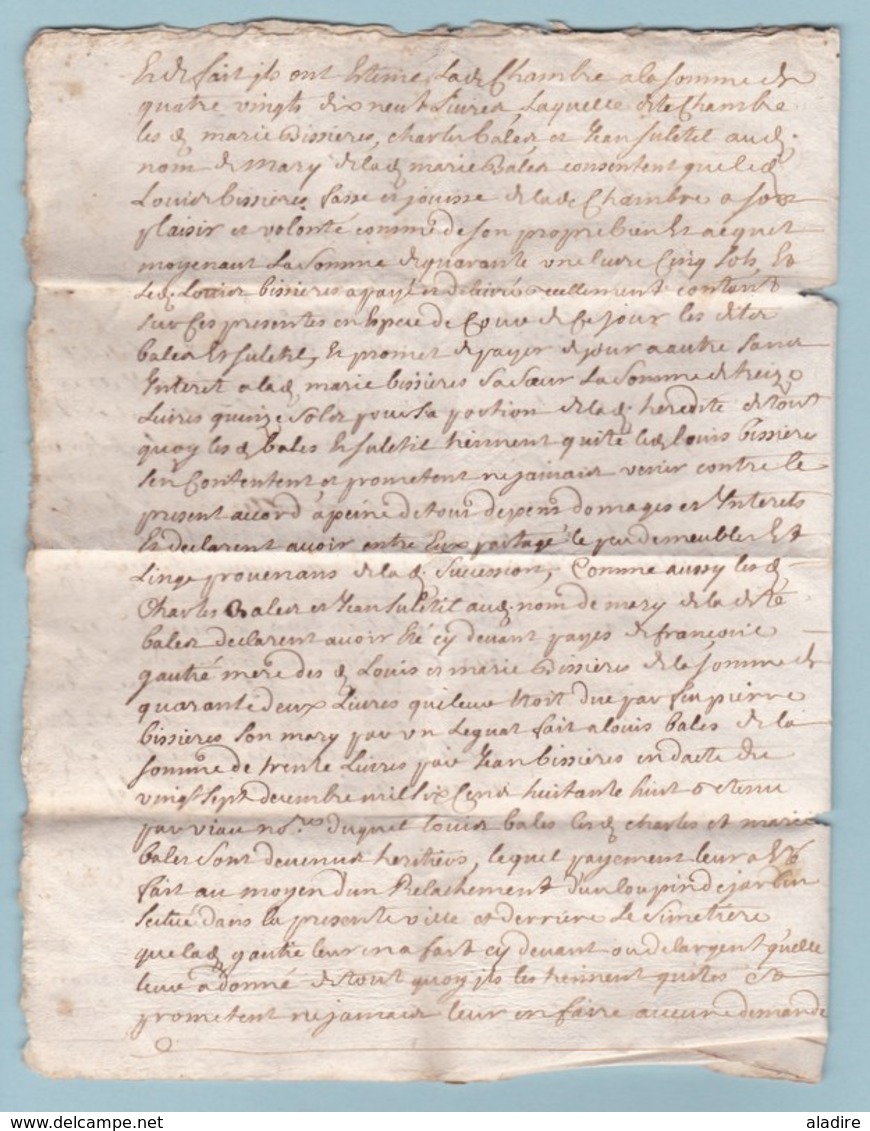 Et de fait ils ont Estimé lad. Chambre a la somme de
quatre vingts dix neuf Livres, Laquelle dite Chambre
les d. marie Bissieres, charles bales et Jean suletil aud.
nom de mary de lad. marie Bales consentent que led.
Louis bissieres fasse et jouisse de lad. Chambre a son
plaisir et volonté comme de son propre bien Et acquet
moyenant La somme de quarante une livre Cinq sols, Et
Led. Louis bissieres a payé et delivré reellement contant
sur ces presentes en Espece de Cours de Ce Jour les dites
bales Et suletil, Et promet de payer de jour a autre sans
Interet a lad. marie bissieres sa sœur La somme de treize
Livres quinze sols pour sa portion de lad. heredite de tout
quoy les d. bales Et suletil tiennent quite led. louis bissieres
sen Contentent et prometent ne jamais venir contre le
present accord a peine de tous depens domages et Interets
Et declarent avoir entre Eux partagé le peu de meubles Et
Linge provenans de lad. succession, Comme aussy les d.
Charles Bales et Jean suletil aud. nom de mary de la dite
bales declarent avoir Eté cy devant payes de françoise
gautié mere des d. Louis et marie Bissieres de la somme de
quarante deux Livres qui leur Etoit due par feu pierre
bissieres son mary par un Leguat fait a louis bales de la
somme de trente Livres par Jean bissieres en dacte du
vingt sept decembre mil six Cens huitante huit retenu
par viau no.re duquel louis bales les d. charles et marie
bales sont devenus heritiers, lequel payement leur a Eté
fait au moyen d'un Relachement d'un loupin de jardin
scitué dans la presente ville et derriere Le Simetiere
que lad. gautié leur en a fait cy devant ou de largent qu'elle
leur a donné de tout quoy ils les tiennent quites Et
prometent ne jamais leur en faire aucune demande
aladire